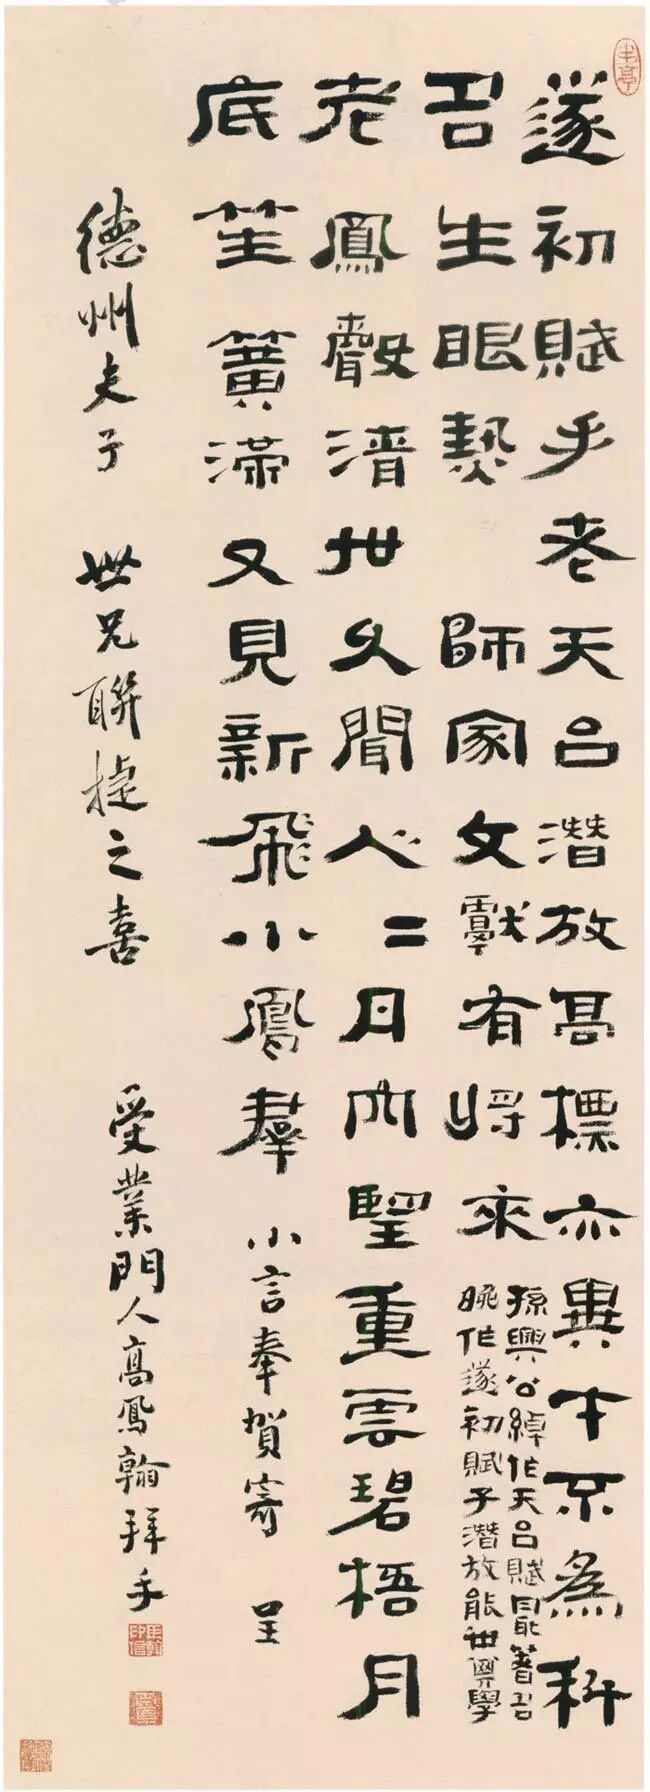 遂初賦手老天台潛放高標亦異才不爲科
名生眼熱 師家文獻有將來
孫興公綽作天台賦最著名
晚作遂初賦子潛放能世其學
老鳳聲清世久聞人二月內望重雲碧梧月
底笙簧滿又見新飛小鳳羣 小言奉賀寄 呈
德州夫子 世兄聯捷之喜 受業門人高鳳翰拜手